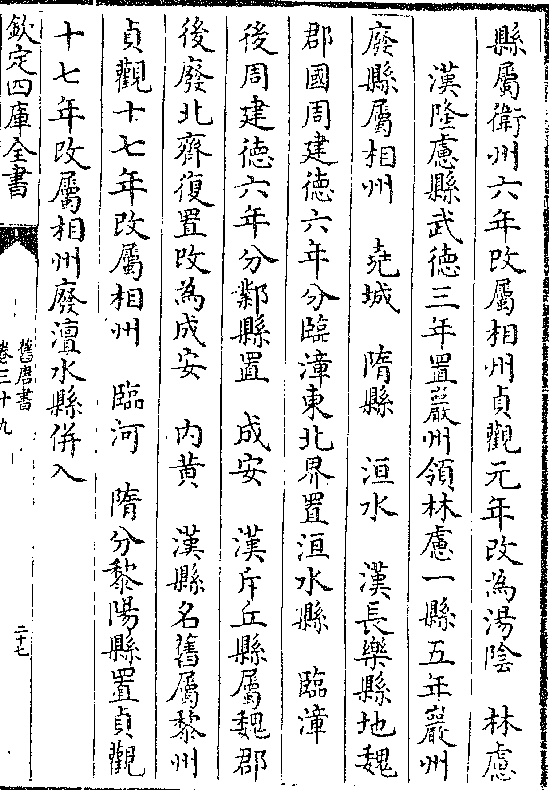 縣屬衛州六年改屬相州貞觀元年改為湯陰　林慮
漢隆慮縣武德三年置巖州領林慮一縣五年巖州
廢縣屬相州　堯城　隋縣　洹水　漢長樂縣地魏
郡國周建德六年分臨漳東北界置洹水縣　臨漳
後周建德六年分鄴縣置　成安　漢斥丘縣屬魏郡
後廢北齊復置改為成安　內黃　漢縣名舊屬黎州
貞觀十七年改屬相州　臨河　隋分黎陽縣置貞觀
十七年改屬相州廢澶水縣併入
欽定四庫全書
舊唐書
卷三十九
二十七